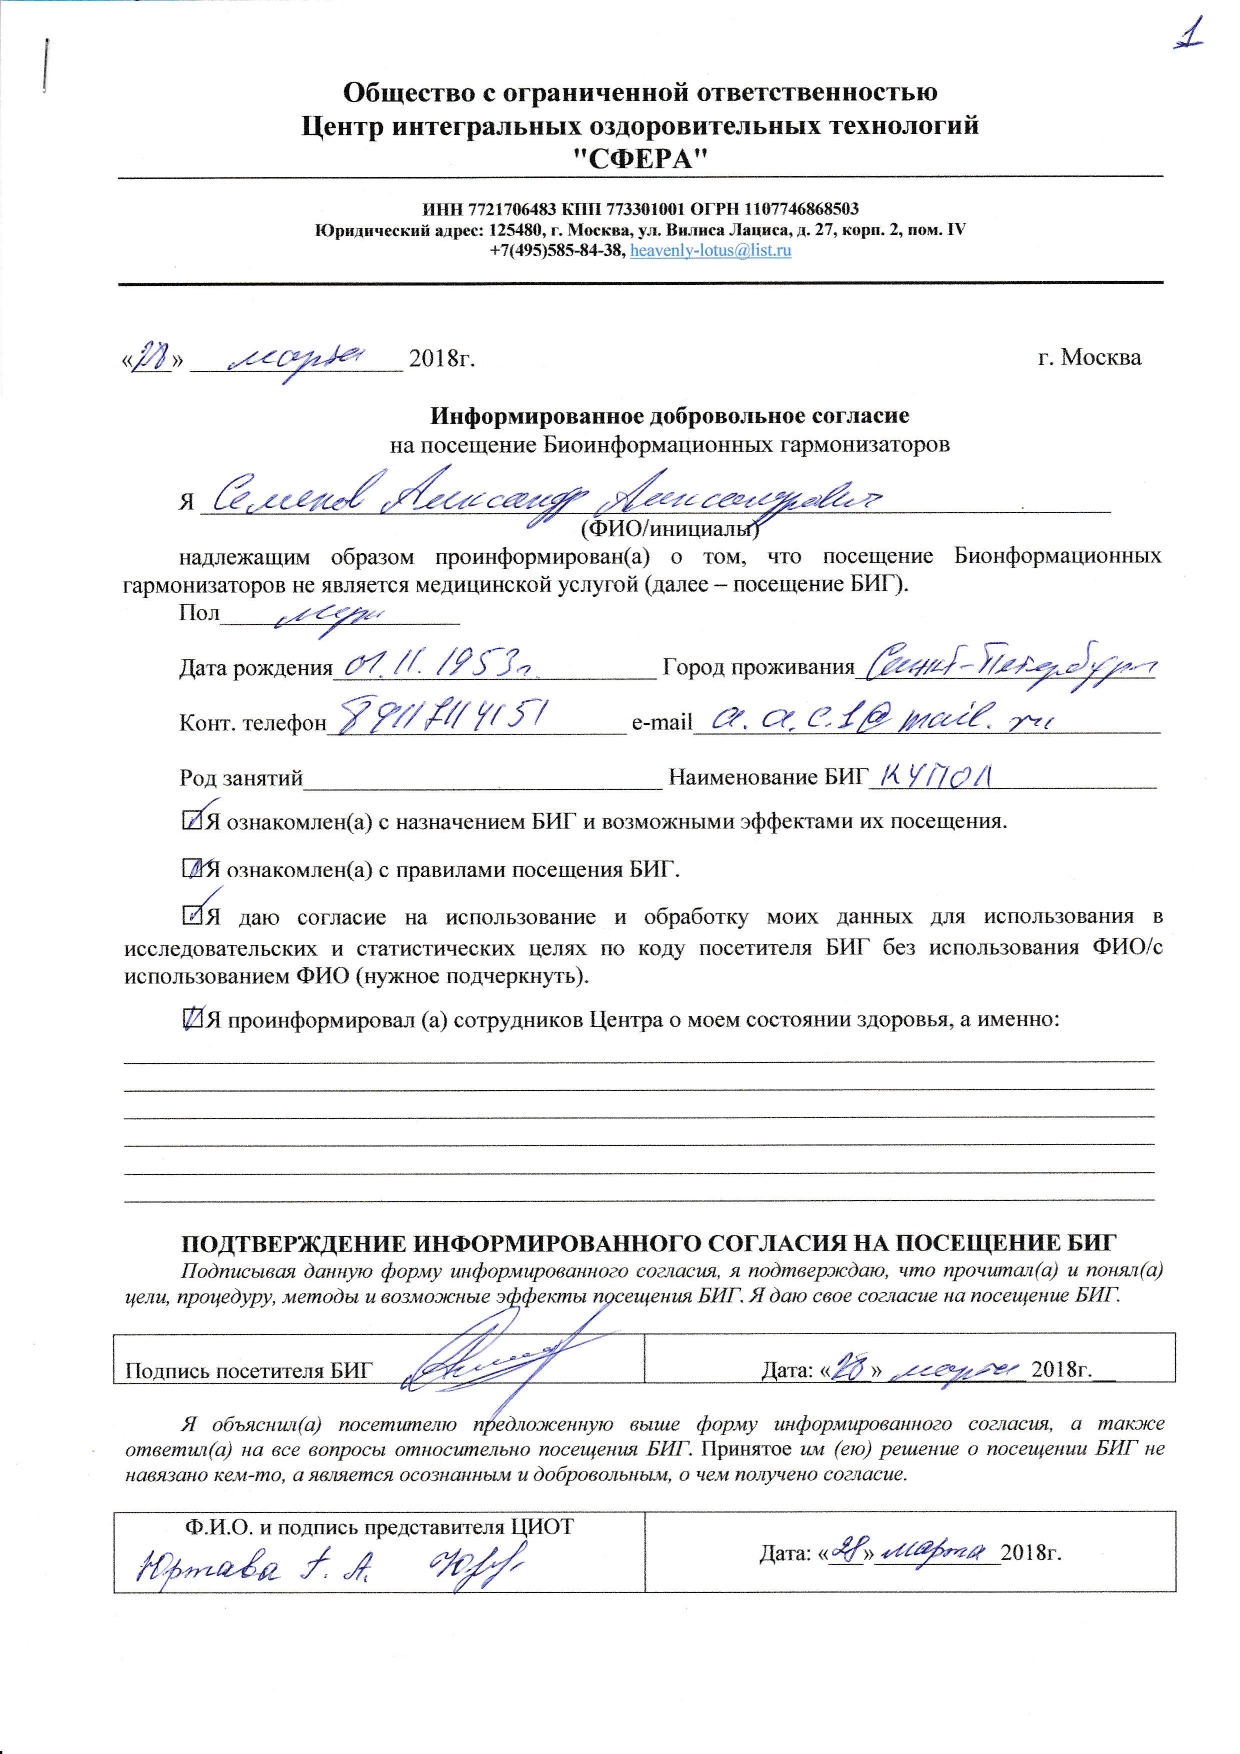 1
Общество с ограниченной ответственностью
Центр интегральных оздоровительных технологий
"СФЕРА"
ИНН 7721706483 КПП 773301001 ОГРН 1107746868503
Юридический адрес: 125480, г. Москва, ул. Вилиса Лациса, д. 27, корп. 2, пом. IV
+7(495)585-84-38, heavenly-lotus@list.ru
«28» марта 2018г. г. Москва
Информированное добровольное согласие
на посещение Биоинформационных гармонизаторов
Я Семенов Александр Александрович
(ФИО/инициалы)
надлежащим образом проинформирован(а) о том, что посещение Бионформационных
гармонизаторов не является медицинской услугой (далее – посещение БИГ).
Пол
Дата рождения 01.11.1953г. Город проживания Санкт-Петербург
Конт. телефон 89117114151 e-mail a.a.c.1@mail.ru
Род занятий Наименование БИГ КУПОЛ
Я ознакомлен(а) с назначением БИГ и возможными эффектами их посещения.
Я ознакомлен(а) с правилами посещения БИГ.
Я даю согласие на использование и обработку моих данных для использования в
исследовательских и статистических целях по коду посетителя БИГ без использования ФИО/с
использованием ФИО (нужное подчеркнуть).
Я проинформировал (а) сотрудников Центра о моем состоянии здоровья, а именно:
ПОДТВЕРЖДЕНИЕ ИНФОРМИРОВАННОГО СОГЛАСИЯ НА ПОСЕЩЕНИЕ БИГ
Подписывая данную форму информированного согласия, я подтверждаю, что прочитал(а) и понял(а)
цели, процедуру, методы и возможные эффекты посещения БИГ. Я даю свое согласие на посещение БИГ.
Подпись посетителя БИГ Дата: «28» марта 2018г.
Я объяснил(а) посетителю предложенную выше форму информированного согласия, а также
ответил(а) на все вопросы относительно посещения БИГ. Принятое им (ею) решение о посещении БИГ не
навязано кем-то, а является осознанным и добровольным, о чем получено согласие.
Ф.И.О. и подпись представителя ЦИОТ
Юртава Г. А. Дата: «28» марта 2018г.